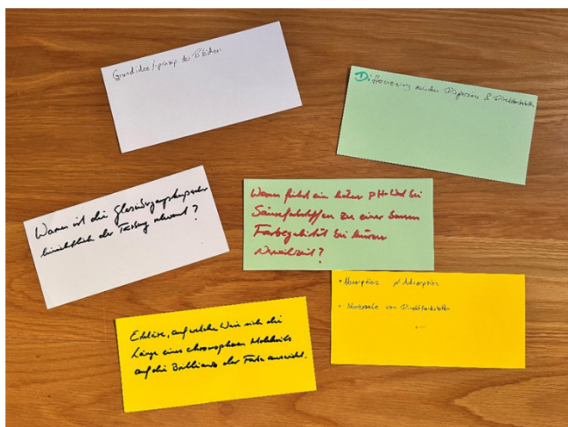 Grundidee/-prinzip des Bleichens
Differenzierung zwischen Dispersions & Direktfarbstoffen
Warum ist die Glasübergangstemperatur
hinsichtlich der Färbung relevant?
Warum führt ein hoher pH-Wert bei
Säurefarbstoffen zu einer
Farbegalität bei
?
• Absorption Adsorption
• Merkmale von Direktfarbstoffen
...
Erkläre, auf welche Weise sich die
Länge eines chromophoren Moleküls
auf die Brillianz der Farbe auswirkt.